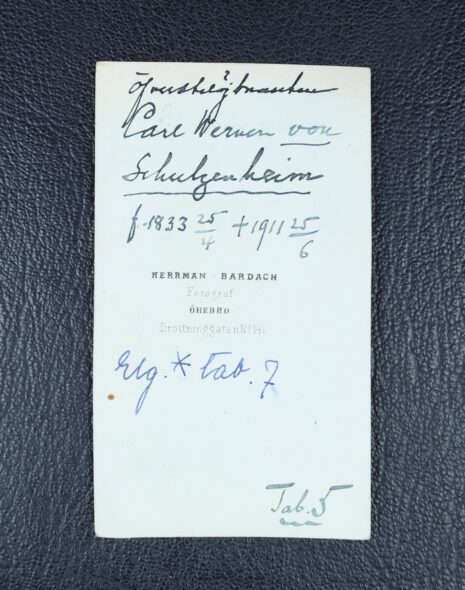 Öfverstelöjtnanten
Carl Werner von
Schulzenheim
f. 1833 25/4 + 1911 25/6
HERRMAN · BARDACH
Fotograf
ÖREBRO
Drottninggatan No 14
Elg. * tab. 7
Tab. 5